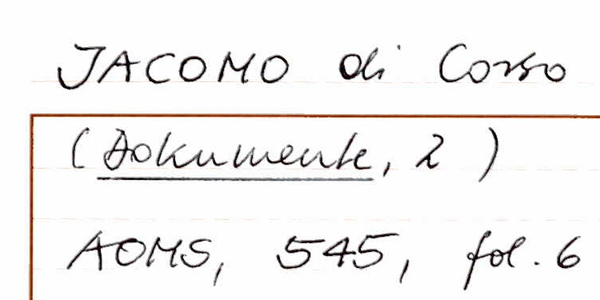 JACOMO di Corso
(Dokumente, 2)
AOMS, 545, fol. 6